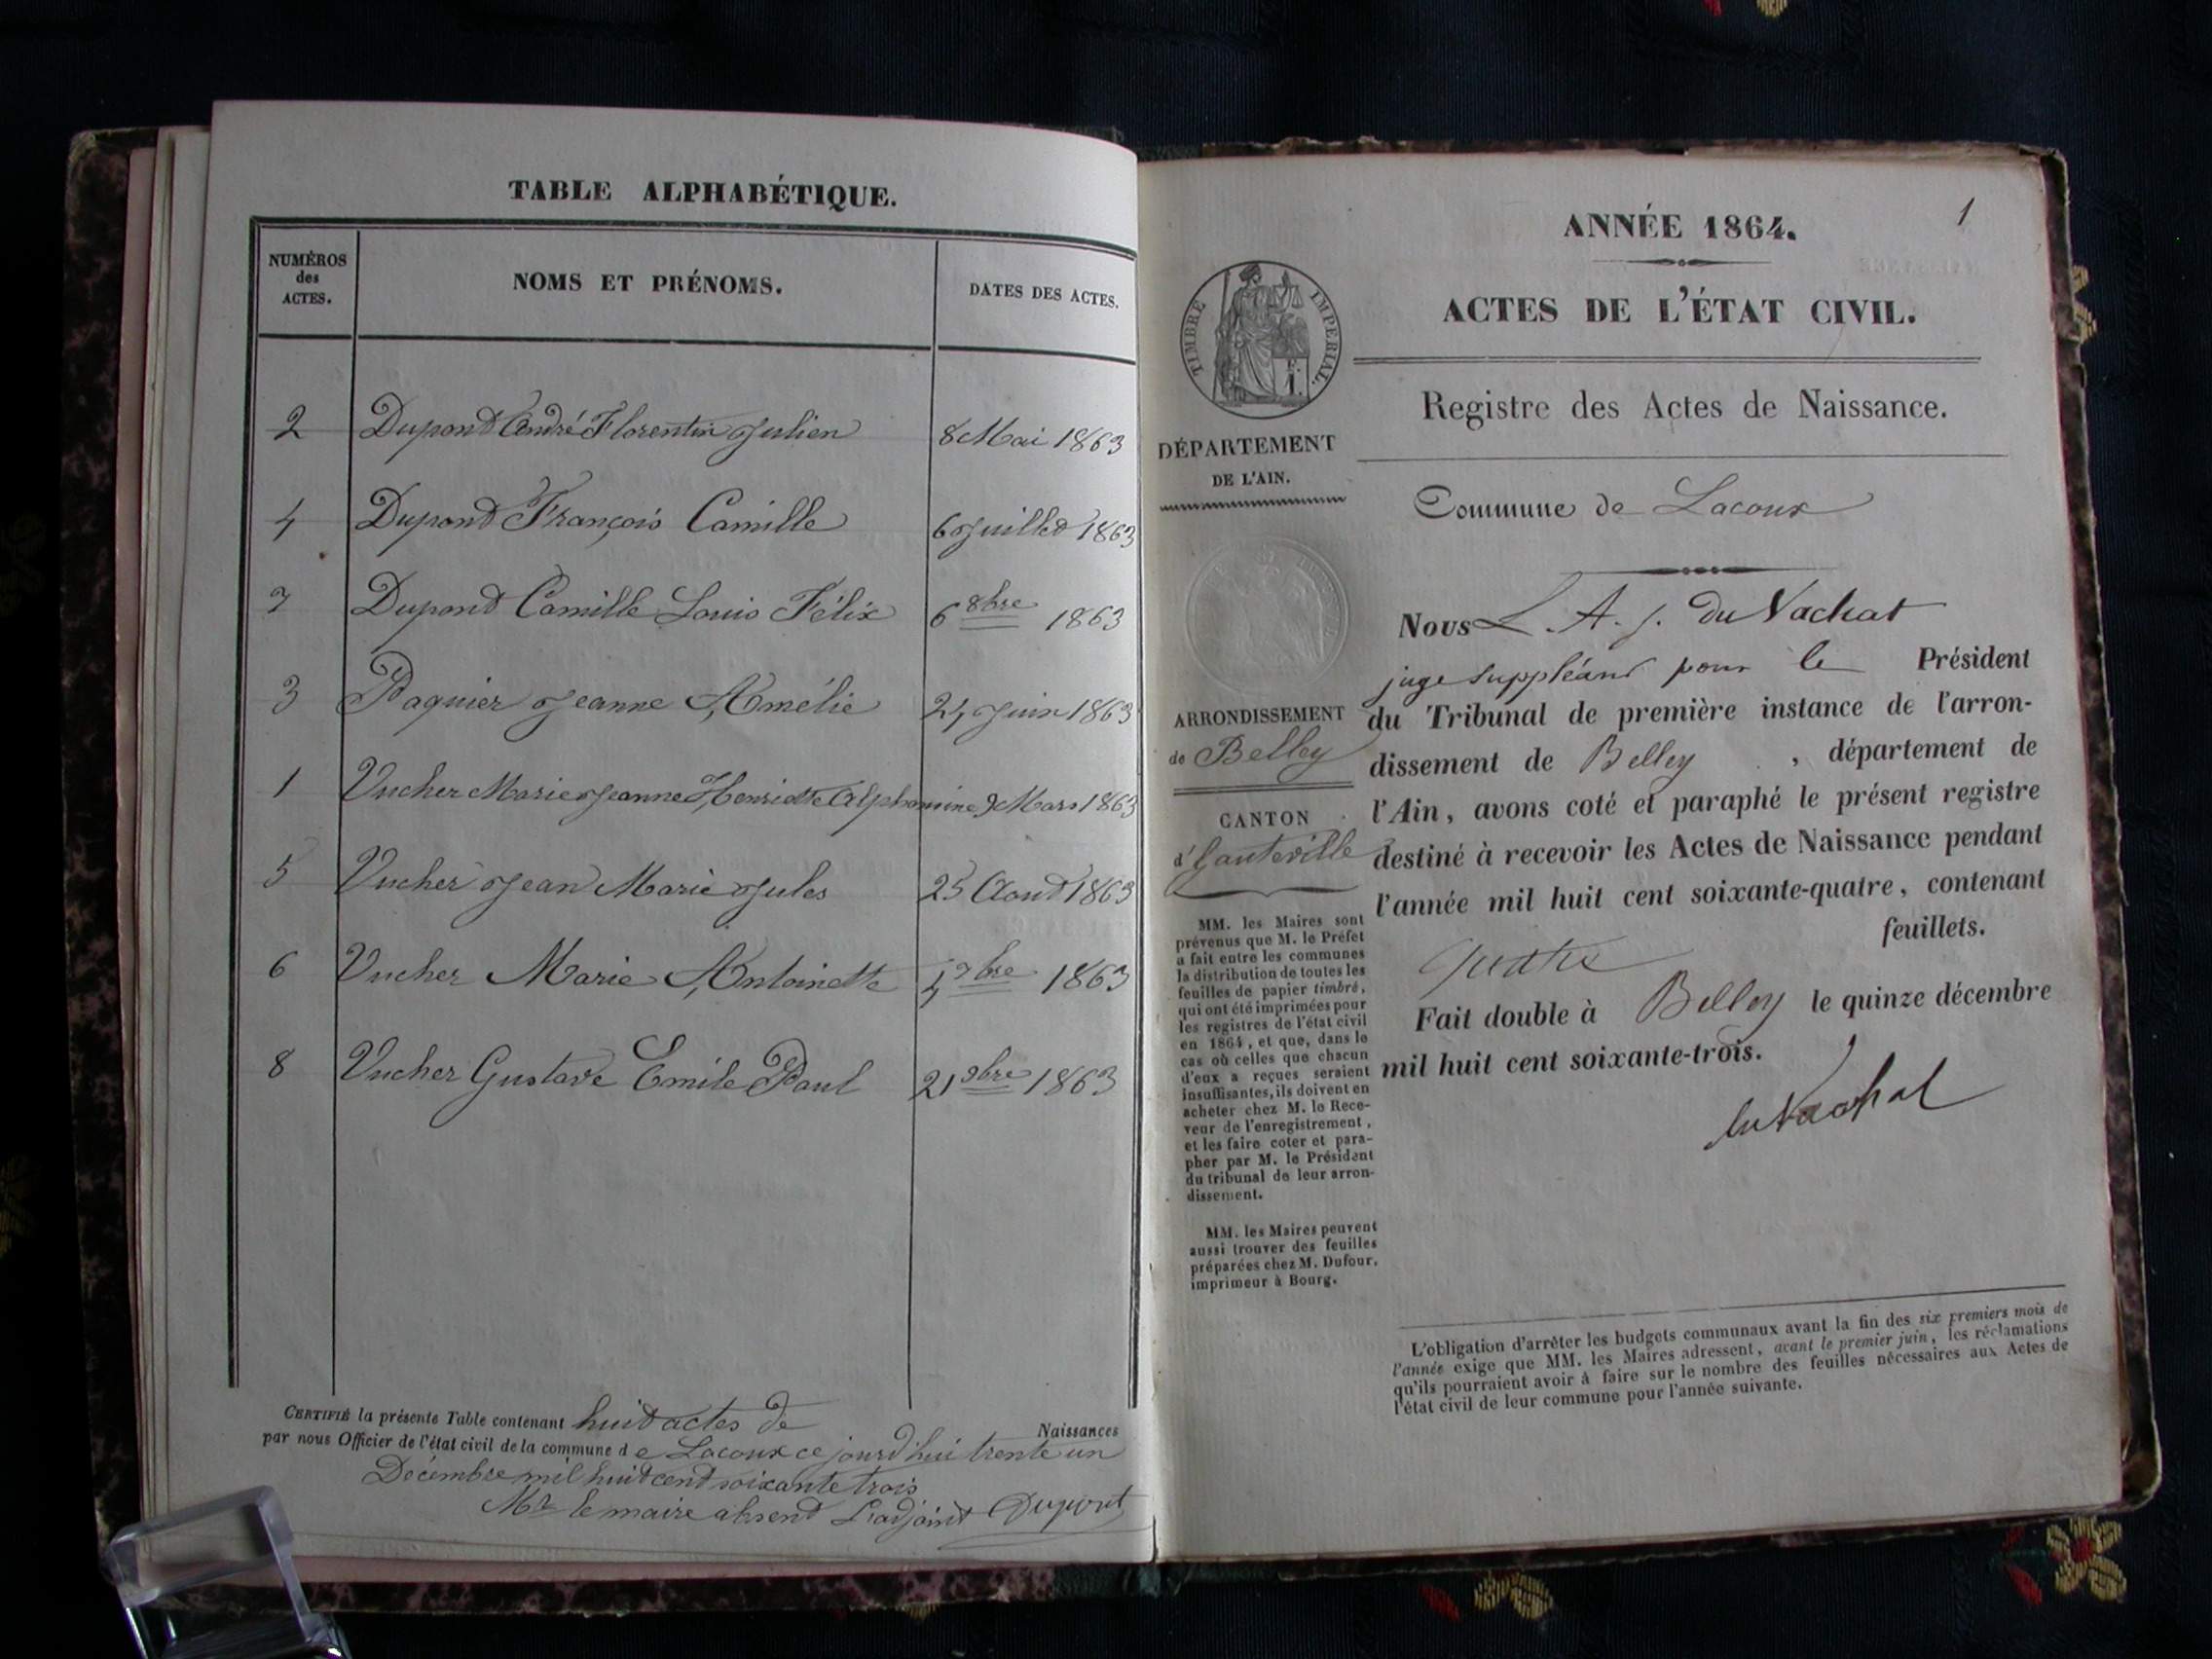 TABLE ALPHABÉTIQUE.
NUMÉROS des ACTES.
NOMS ET PRÉNOMS.
DATES DES ACTES.
2 Dupont André Florentin Julien 8 Mai 1863
4 Dupont François Camille 6 Juillet 1863
7 Dupont Camille Louis Félix 6 8bre 1863
3 Paquier Jeanne Amélie 24 Juin 1863
1 Vucher Marie Jeanne Henriette Alphonsine 9 Mars 1863
5 Vucher Jean Marie Jules 25 Aout 1863
6 Vucher Marie Antoinette 4 7bre 1863
8 Vucher Gustave Emile Paul 21 9bre 1863
CERTIFIÉ la présente Table contenant huit actes de Naissances
par nous Officier de l'état civil de la commune de Lacoux ce jourd'hui trente un
Décembre mil huit cent soixante trois
Mr le maire absent L'adjoint Dupont
1
ANNÉE 1864.
ACTES DE L'ÉTAT CIVIL.
Registre des Actes de Naissance.
TIMBRE IMPERIAL.
DÉPARTEMENT
DE L'AIN.
ARRONDISSEMENT
de Belley
CANTON
d'hauteville
MM. les Maires sont
prévenus que M. le Préfet
a fait entre les communes
la distribution de toutes les
feuilles de papier timbré,
qui ont été imprimées pour
les registres de l'état civil
en 1864, et que, dans le
cas où celles que chacun
d'eux a reçues seraient
insuffisantes, ils doivent en
acheter chez M. le Rece-
veur de l'enregistrement,
et les faire coter et para-
pher par M. le Président
du tribunal de leur arron-
dissement.
MM. les Maires peuvent
aussi trouver des feuilles
préparées chez M. Dufour,
imprimeur à Bourg.
Commune de Lacoux
Nous L. A. J. Du Vachat
juge suppléant pour le Président
du Tribunal de première instance de l'arron-
dissement de Belley, département de
l'Ain, avons coté et paraphé le présent registre
destiné à recevoir les Actes de Naissance pendant
l'année mil huit cent soixante-quatre, contenant
quatre feuillets.
Fait double à Belley le quinze décembre
mil huit cent soixante-trois.
du Vachat
L'obligation d'arrêter les budgets communaux avant la fin des six premiers mois de
l'année exige que MM. les Maires adressent, avant le premier juin, les réclamations
qu'ils pourraient avoir à faire sur le nombre des feuilles nécessaires aux Actes de
l'état civil de leur commune pour l'année suivante.